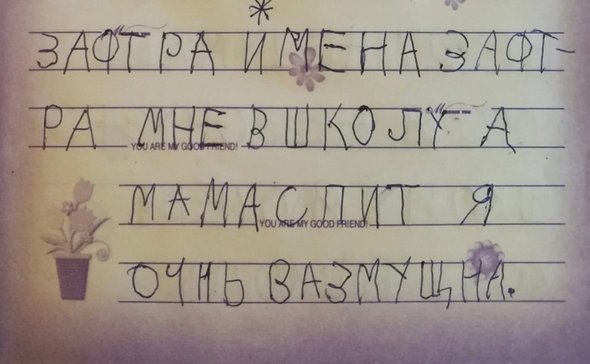 *
ЗАФТРА ИМЕНА ЗАФТ-
РА МНЕ В ШКОЛУ А
YOU ARE MY GOOD FRIEND!
МАМА СПИТ Я
YOU ARE MY GOOD FRIEND!
ОЧНЬ ВАЗМУЩНА.